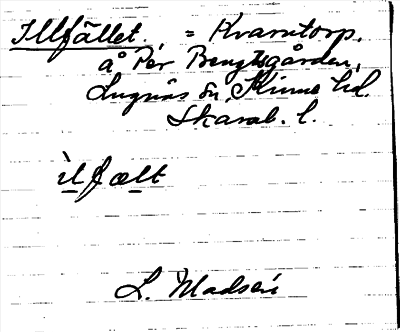 Illfället. = Kvarntorp,
å Per Bengtsgården,
Lugnås sn, Kinne hd.
Skarab. l.
ìlfælt
L. Madsén